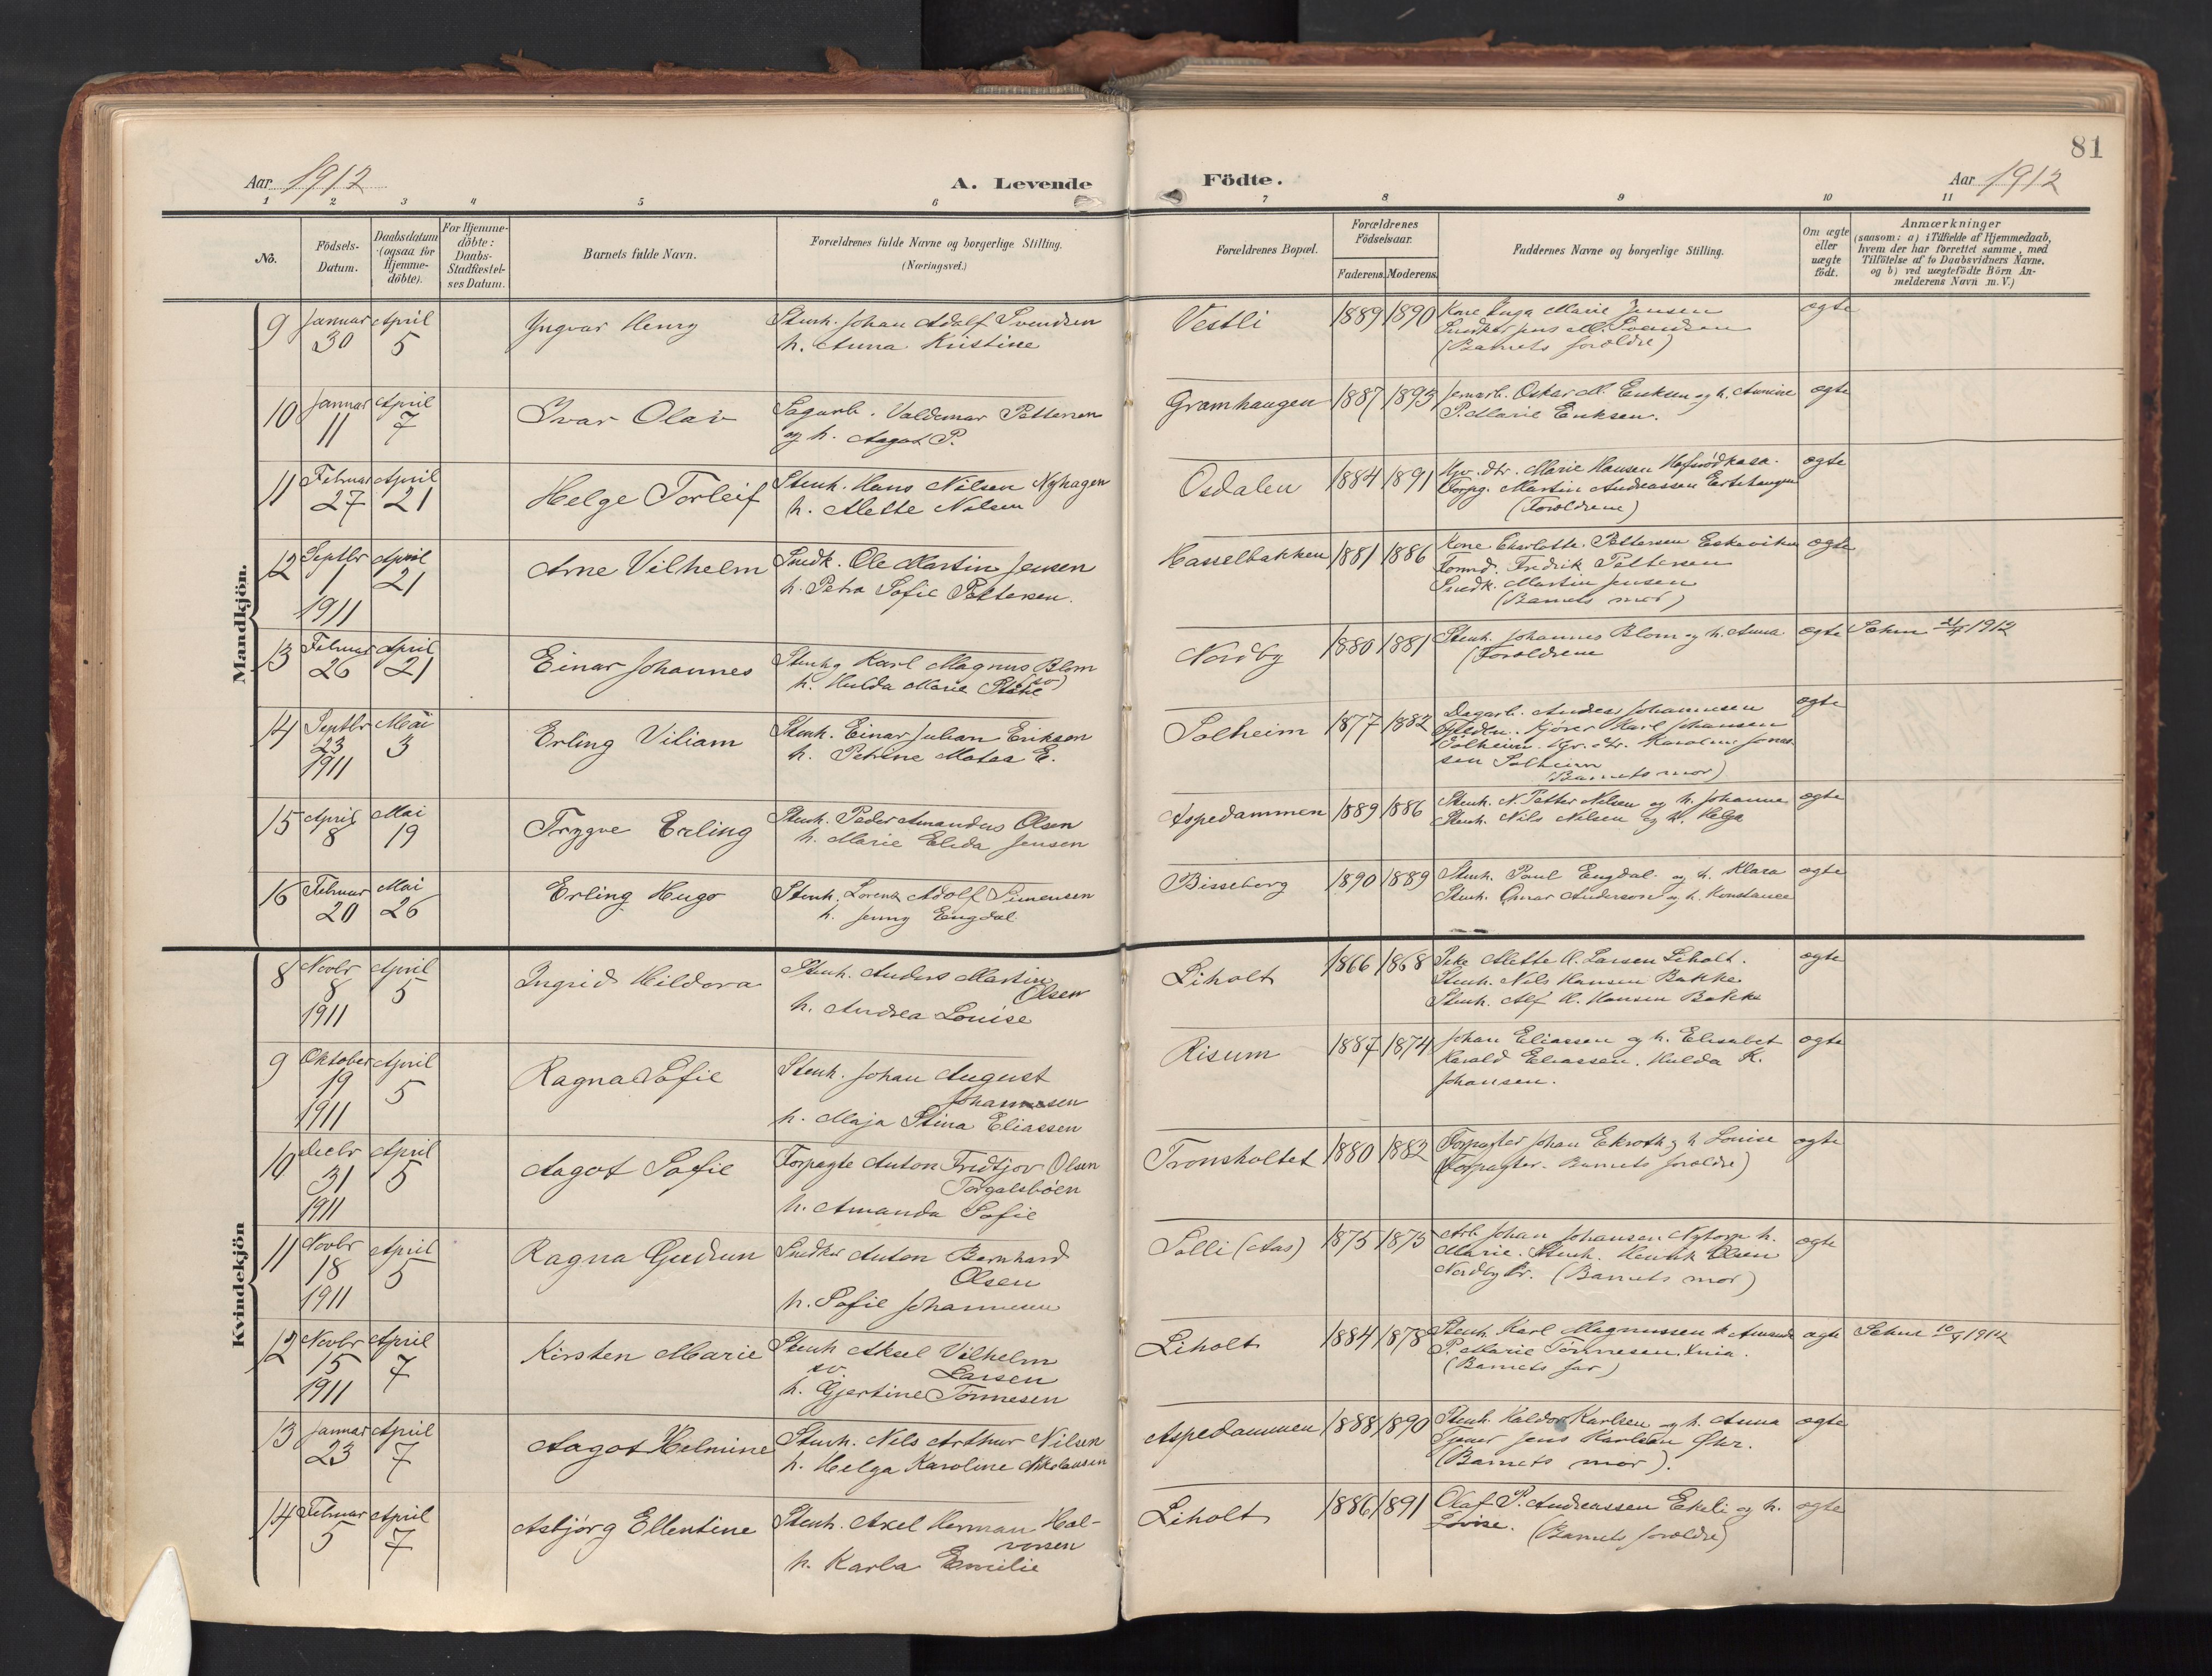 81
Aar 1912
A. Levende Födte.
Aar 1912
1 2 3 4 5 6 7 8 9 10 11
No.
Födsels-Datum.
Daabsdatum (ogsaa for Hjemme-döbte).
For Hjemme-döbte: Daabs-Stadfæstel-ses Datum.
Barnets fulde Navn.
Forældrenes fulde Navne og borgerlige Stilling.
(Næringsvei.)
Forældrenes Bopæl.
Forældrenes Födselsaar.
Faderens. Moderens.
Faddernes Navne og borgerlige Stilling.
Om ægte eller uægte födt.
Anmærkninger
(saasom: a) i Tilfælde af Hjemmedaab,
hvem der har forrettet samme, med
Tilföielse af to Daabsvidners Navne.
og b) ved uægtefödte Börn An-
melderens Navn m. V.)
Mandkjön.
9 Januar 30 April 5 Yngvar Henry
Stenh. Johan Adolf Svendsen
h. Anna Kristine
Vestli 1889 1890
Kone Inga Marie Jensen
Snedker Jens M. Svendsen
(Barnets forældre)
ægte
10 Januar 11 April 7 Ivar Olav
Sagarb. Valdemar Pettersen
og h. Aagot P.
Gramhaugen 1887 1893
Jernarb. Oskar M. Eriksen og h. Annine
P. Marie Eriksen.
ægte
11 Februar 27 April 21 Helge Torleif
Stenh. Hans Nilsen Nyhagen
h. Alette Nilsen
Osdalen 1884 1891
Gpr. dtr. Marie Hansen
Forpg. Martin Andreassen
(Forældrene)
ægte
12 Septbr 1 1911 April 21 Arne Vilhelm
Snedk. Ole Martin Jensen
h. Petra Sofie Pettersen.
Hasselbakken 1881 1886
Kone Charlotte Pettersen Eskeviken
Formd. Fredrik Pettersen
Snedk. Martin Jensen
(Barnets mor)
ægte
13 Februar 26 April 21 Einar Johannes
Stenhg Karl Magnus Blom
h. Hulda Marie Stene (so)
Nordby 1880 1881
Stenh. Johannes Blom og h. Anna
(Forældrene
ægte
1912
14 Septbr 23 1911 Mai 3 Erling Viliam
Stenh. Einar Julian Eriksen
h. Petrine Matea E.
Solheim 1877 1882
Dagarb. Andreas Johannesen
Kjører Karl Johansen
Solheim. Gpr. dtr. Karoline Jonas-
sen Solheim
(Barnets mor)
ægte
15 April 8 Mai 19 Trygve Erling
Stenh. Peder Amandus Olsen
h. Marie Elida Jensen
Aspedammen 1889 1886
Stenh. N. Petter Nilsen og h. Johanne
Stenh. Nils Nilsen og h. Helga
ægte
16 Februar 20 Mai 26 Erling Hugo
Stenh. Lorentz Adolf Simensen
h. Jenny Engdal
Bisseberg 1890 1889
Stenh. Paul Engdal og h. Klara
Stenh. Gunnar Anderson og h. Konstance
ægte
Kvindekjön
8 Novbr 8 1911 April 5 Ingrid Hildora
Stenh. Anders Martin
Olsen
h. Andrea Louise
Liholt 1866 1868
Pike Alette K. Larsen Liholt.
Stenh. Nils Hansen Bakke
Stenh. Alf H. Hansen Bakke
ægte
9 Oktober 19 1911 April 5 Ragna Sofie
Stenh. Johan August
Johannesen
h. Maja Stina Eliassen
Risum 1887 1874
Johan Eliassen og h. Elisabet
Harald Eliassen. Hulda K.
Johansen.
ægte
10 Decbr 31 1911 April 5 Aagot Sofie
Forpagte Anton Fridtjov Olsen
Torgalsbøen
h. Amanda Sofie
Tronsholtet 1880 1882
Forpagter Johan Ekroth og h. Louise
(Forpagter. Barnets forældre)
ægte
11 Novbr 18 1911 April 5 Ragna Gudrun
Snedker Anton Bernhard
Olsen
h. Sofie Johannesen
Solli (Aas) 1875 1875
Arb Johan Johansen Nytorp h.
Marie. Stenh. Henrik Olsen
Nordby br. (Barnets mor)
ægte
12 Novbr 15 1911 April 7 Kirsten Marie
Stenh Aksel Vilhelm
Larsen
h. Gjertine Tønnesen
Liholt 1884 1878
Stenh. Karl Magnussen h Amanda
P. Marie Tønnesen.
(Barnets far)
ægte
1912
13 Januar 23 April 7 Aagot Helmine
Stenh. Nils Arthur Nilsen
h. Helga Karoline Nikolausen
Aspedammen 1888 1890
Stenh. Haldor Karlsen og h. Anna
Jens Karlsen
(Barnets mor).
ægte
14 Februar 5 April 7 Asbjørg Ellentine
Stenh. Axel Herman Hal-
vorsen
h. Karla Emilie
Liholt 1886 1891
Olaf P. Andreassen Ekeli og h.
Lovise. (Barnets forældre)
ægte